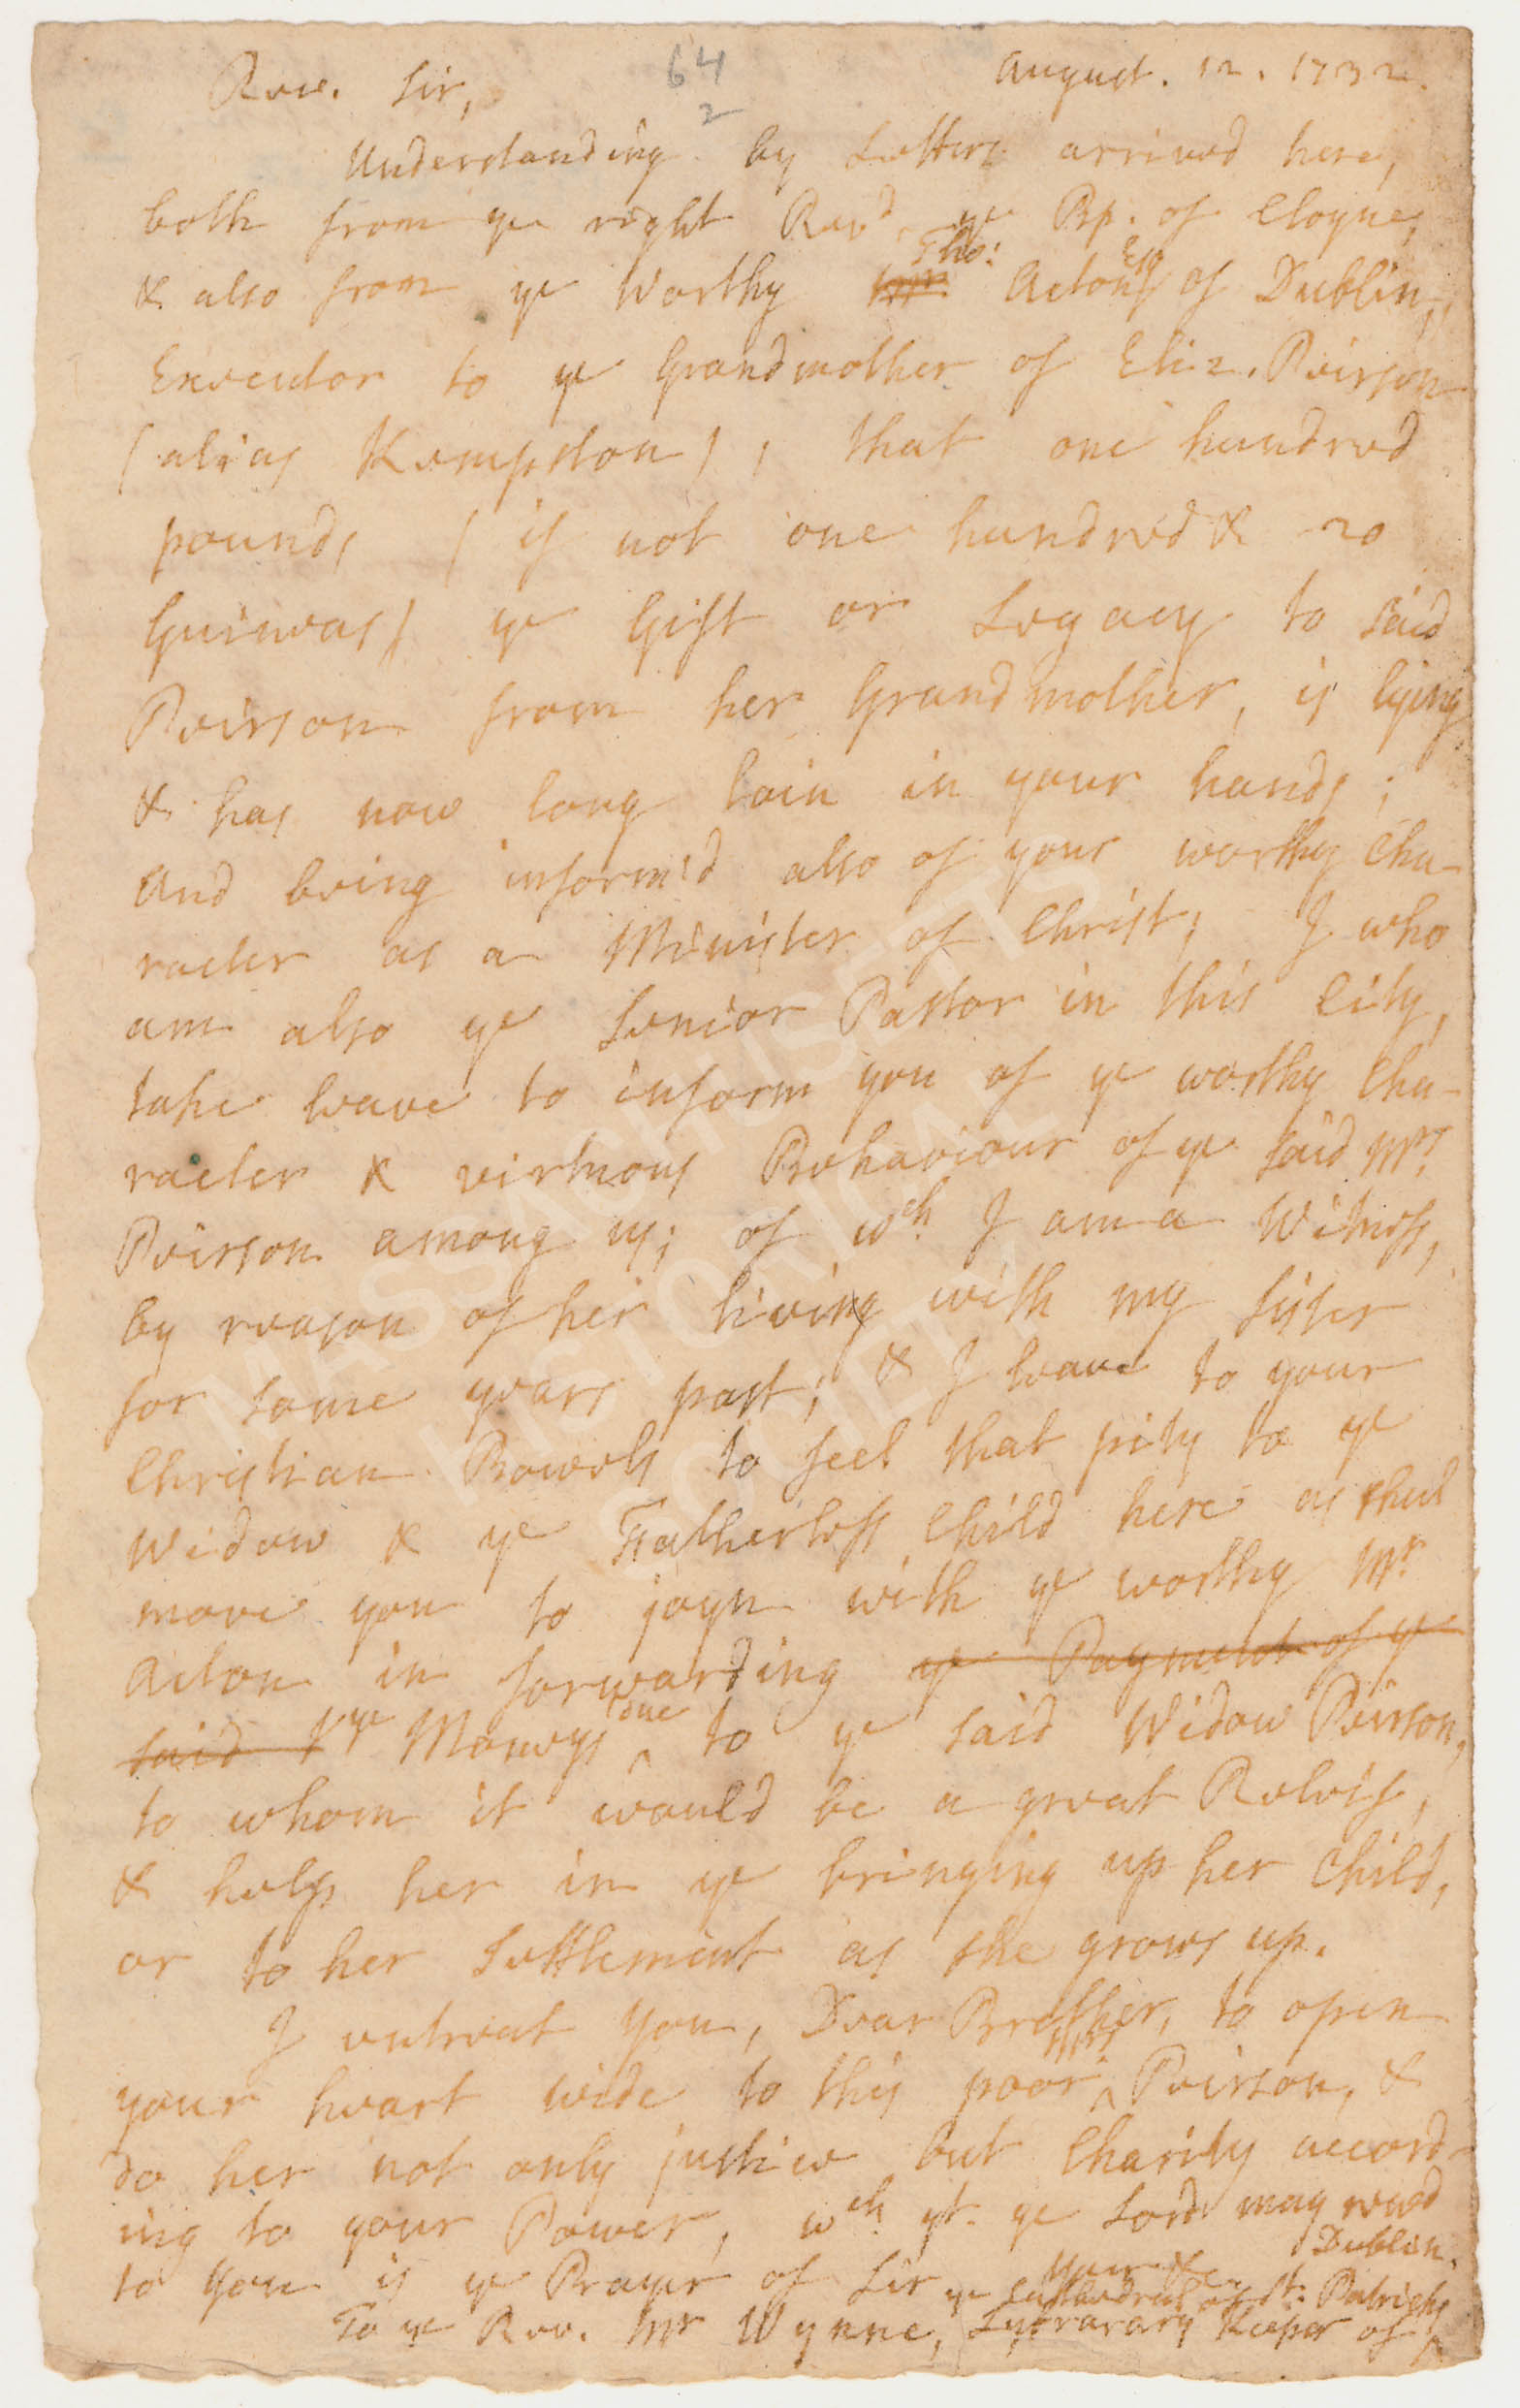 64
2
August. 12. 1732.
Rev. Sir,
Understanding by Letters arrived here,
both from ye right Revd. ye Bp. of Cloyne,
& also from ye Worthy Mr Tho: Acton Esq of Dublin,
Executor to ye Grandmother of Eliz. Peirson
(alias Kempston), that one hundred
pounds (if not one hundred & 20
Guineas) ye Gift or Legacy to said
Peirson from her Grandmother, is lying
& has now long lain in your hands;
And being inform'd also of your worthy Cha-
racter as a Minister of Christ; I who
am also ye Senior Pastor in this City,
take leave to inform you of ye worthy Cha-
racter & virtuous Behaviour of ye said Mrs
Peirson among us; of wch. I am a Witness,
by reason of her living with my Sister
for some years past; & I leave to your
Christian Bowels to feel that pity to ye
Widow & ye Fatherless Child here as shal
move you to joyn with ye worthy Mr
Acton in forwarding ye Payment of ye
said ye Moneys due to ye said Widow Peirson,
to whom it would be a great Releif,
& help her in ye bringing up her Child,
or to her Settlement as she grows up.
I entreat You, Dear Brother, to open
your heart wide to this poor Mrs Peirson, &
do her not only justice but Charity accord-
ing to your Power, wch. yt. ye Lord may rewd
to you is ye Prayer of Sir Your &c.
To ye Rev. Mr Wynne, Lybrarary Keeper of ye Cathedral of St. Patricks Dublin.
MASSACHUSETTS
HISTORICAL
SOCIETY